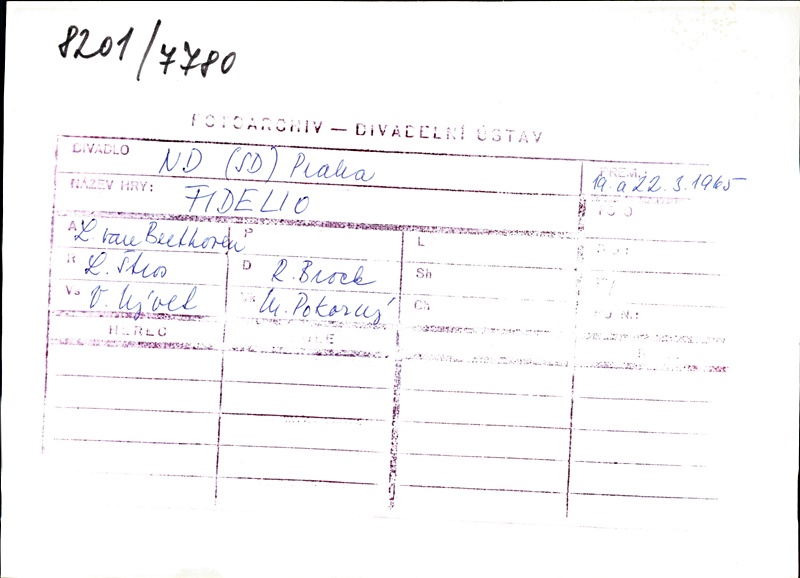 8201/7780
FOTOARCHIV — DIVADELNÍ ÚSTAV
DIVADLO ND (SD) Praha
PREM. 19. a 22. 3. 1965
NÁZEV HRY: FIDELIO
A L. van Beethoven P L
R L. Štros D R. Brock Sh
VS V. Nývlt M. Pokorný Ch
HEREC